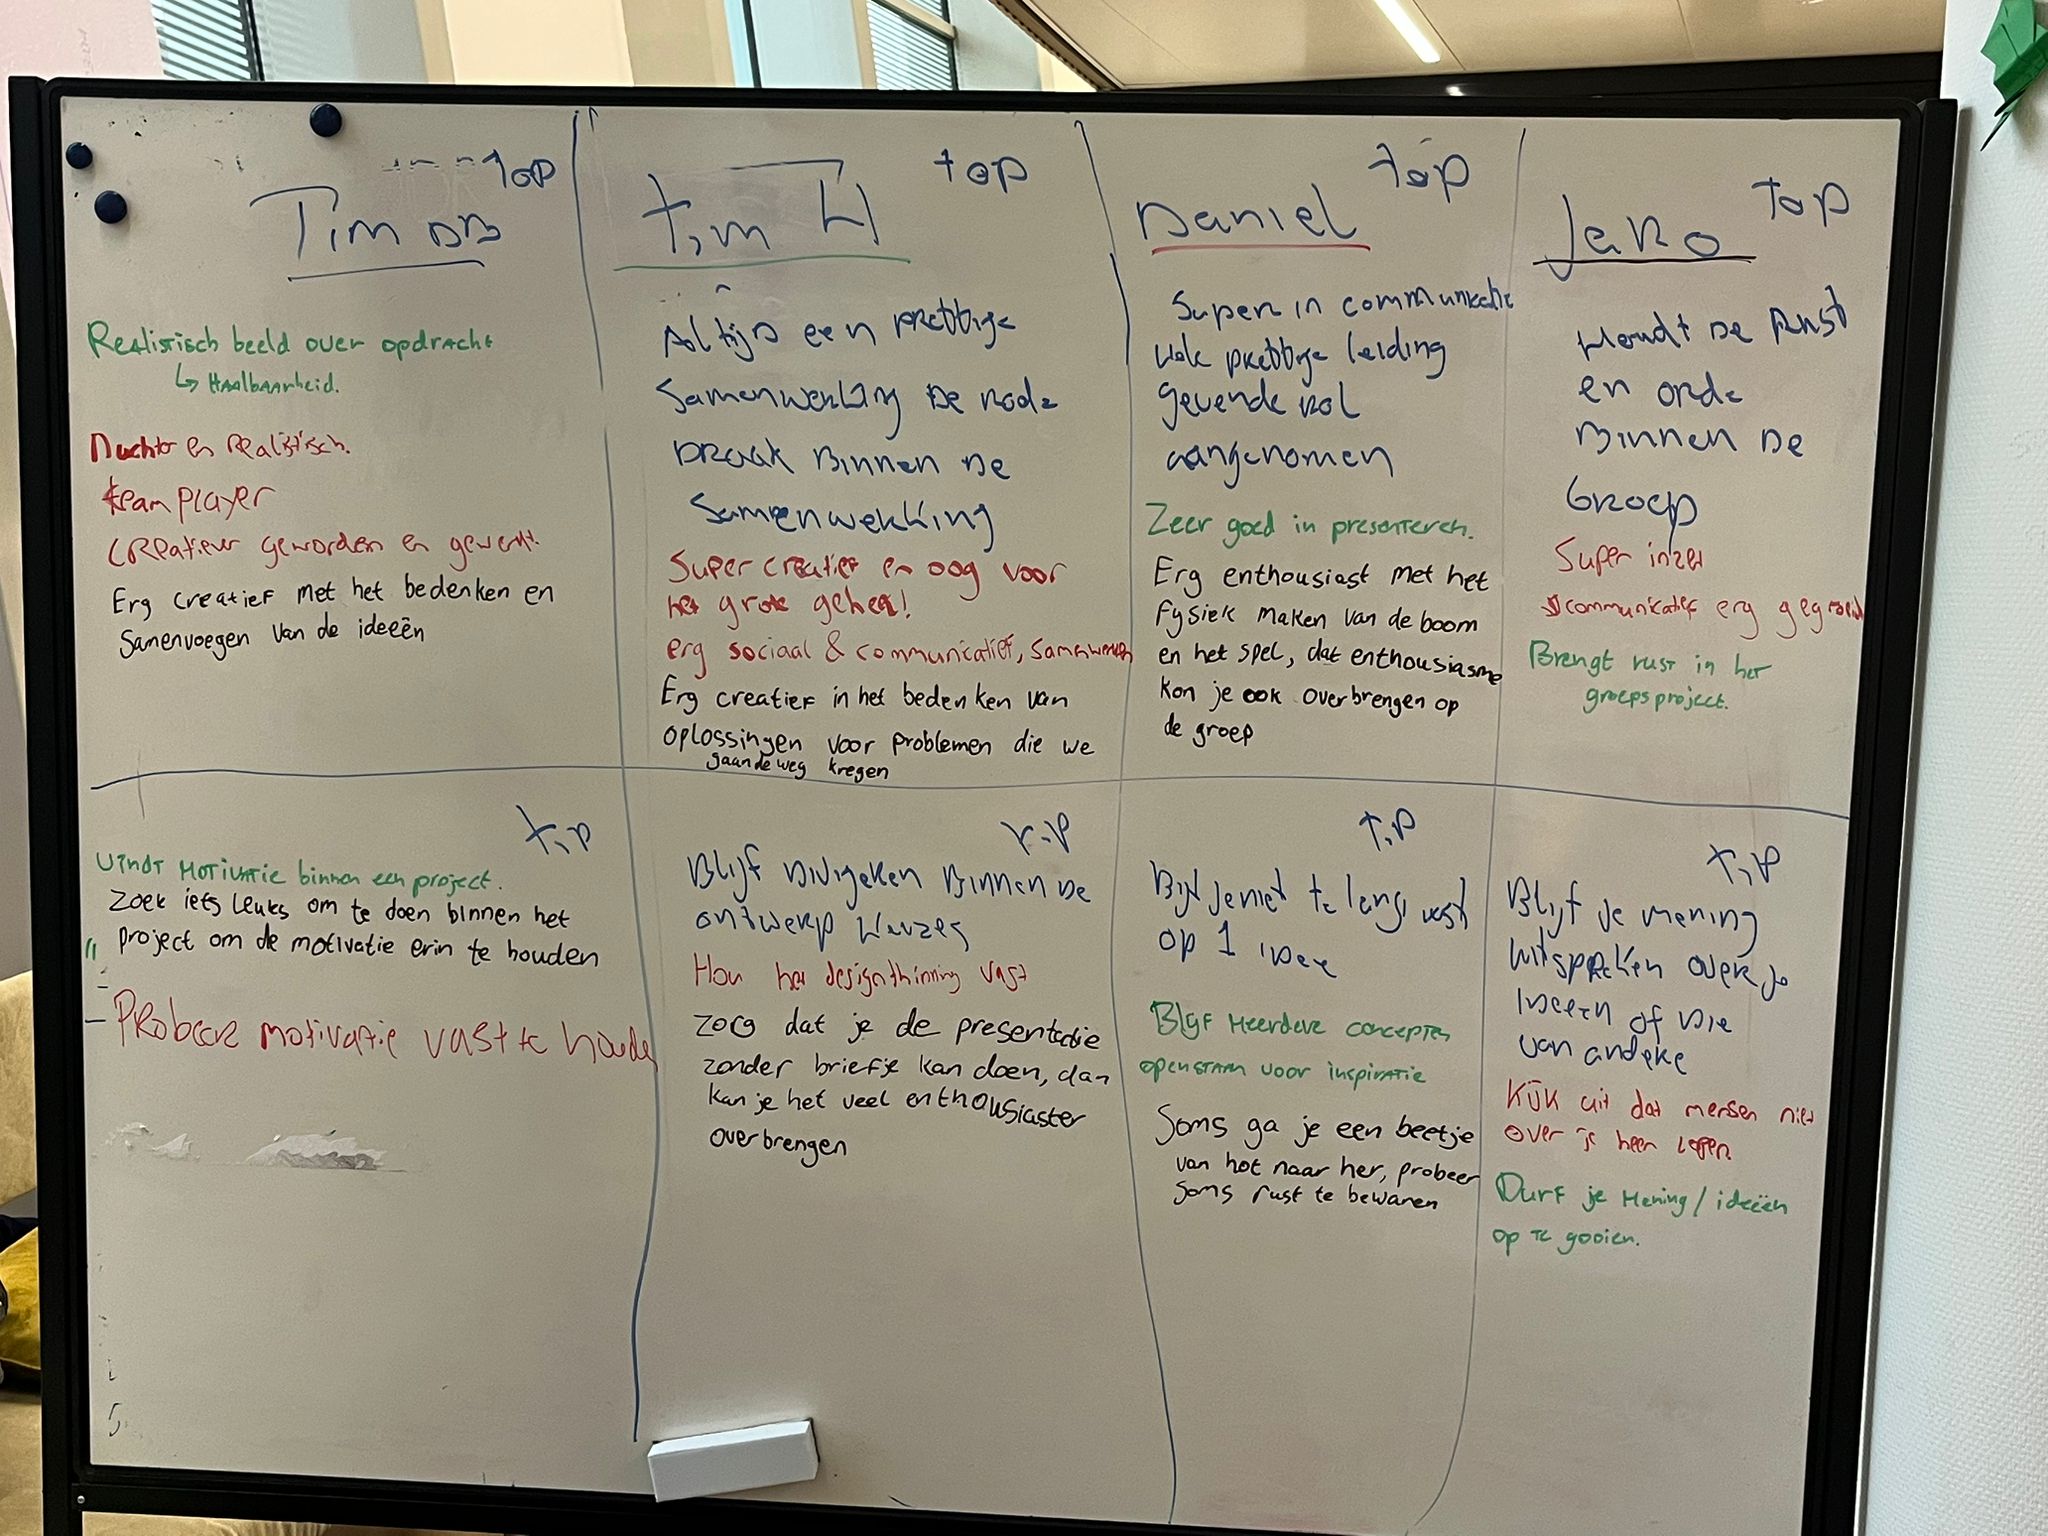 top
Tim DB
Realistisch beeld over opdracht
↳ Haalbaarheid.
Nuchter en realistisch.
teamplayer
creatiever geworden en gewerkt.
Erg creatief met het bedenken en
Samenvoegen van de ideeën
top
tim H
Altijd een prettige
Samenwerking de rode
draak binnen de
Samenwerking
Super creatief en oog voor
het grote geheel!
erg sociaal & communicatief, samenwerken
Erg creatief in het bedenken van
oplossingen voor problemen die we
gaandeweg kregen
top
Daniel
Super in communicatie
leiding
gevende rol
aangenomen
Zeer goed in presenteren.
Erg enthousiast met het
fysiek maken van de boom
en het spel, dat enthousiasme
kon je ook overbrengen op
de groep
top
Jarno
Houdt de rust
en orde
binnen de
Groep
Super inzet
communicatief erg gegroeid
Brengt rust in het
groepsproject.
tip
Vindt motivatie binnen een project.
Zoek iets leuks om te doen binnen het
project om de motivatie erin te houden
- Probeer motivatie vast te houden
tip
Blijf binnen de
ontwerp keuzes
Hou het designthinning vast
zorg dat je de presentatie
zonder briefje kan doen, dan
kan je het veel enthousiaster
overbrengen
tip
Bijt je niet te lang vast
op 1 idee
Blijf meerdere concepten
openstaan voor inspiratie
Soms ga je een beetje
van hot naar her, probeer
soms rust te bewaren
tip
Blijf je mening
uitspreken over je
ideeën of die
van andere
Kijk uit dat mensen niet
over je heen lopen.
Durf je mening / ideeën
op te gooien.